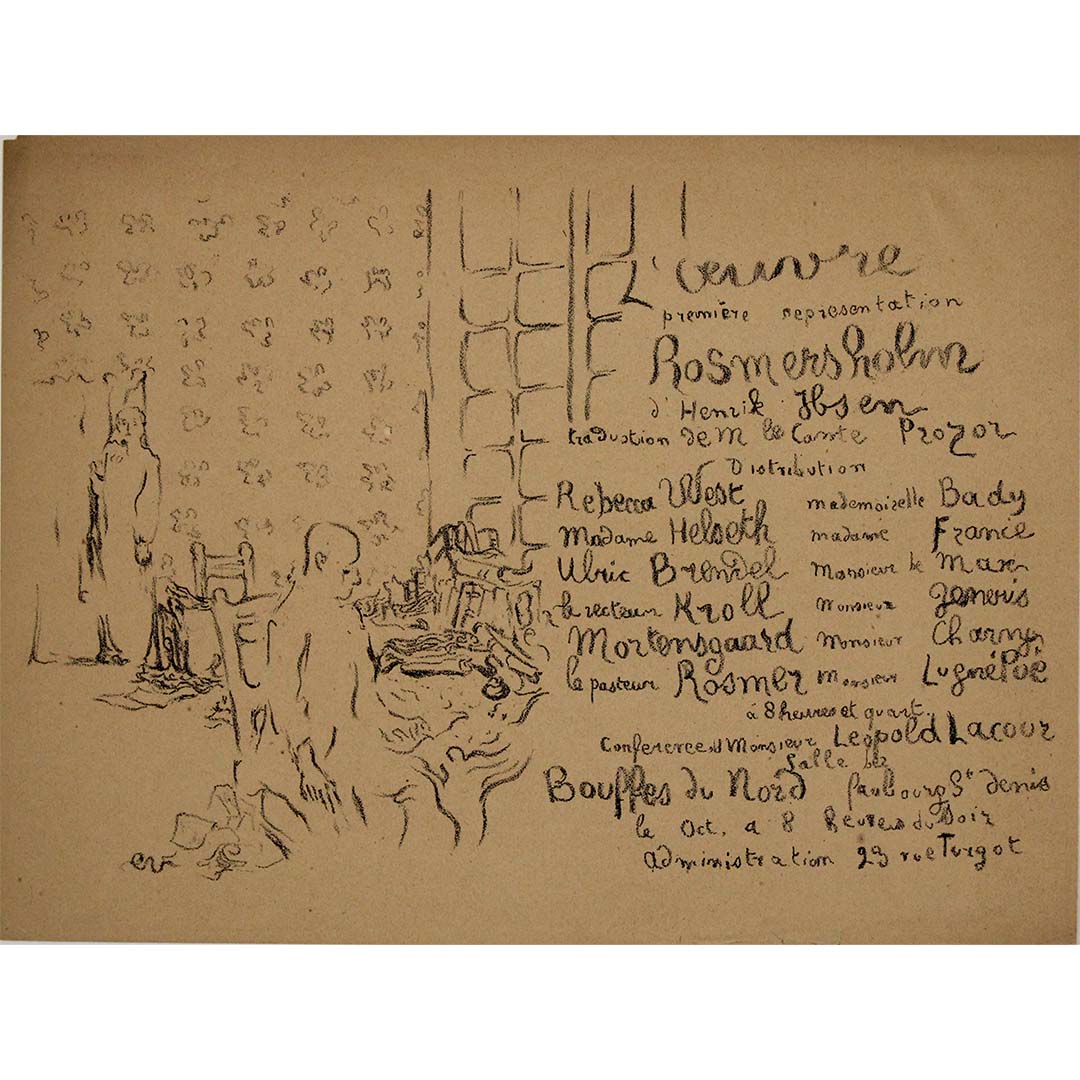 L'œuvre
première representation
Rosmersholm
d'Henrik Ibsen
traduction de M le Comte Prozor
Distribution
Rebecca West mademoiselle Bady
Madame Helseth madame France
Ulric Brendel Monsieur de Max
le recteur Kroll Monsieur Gemeris
Mortensgaard Monsieur Charny
le pasteur Rosmer Monsieur Lugné Poë
à 8 heures et quart
Conference d Monsieur Leopold Lacour
Salle
Bouffes du Nord faubourg St denis
le Oct. a 8 heures du Soir
administration 23 rue Turgot
ev